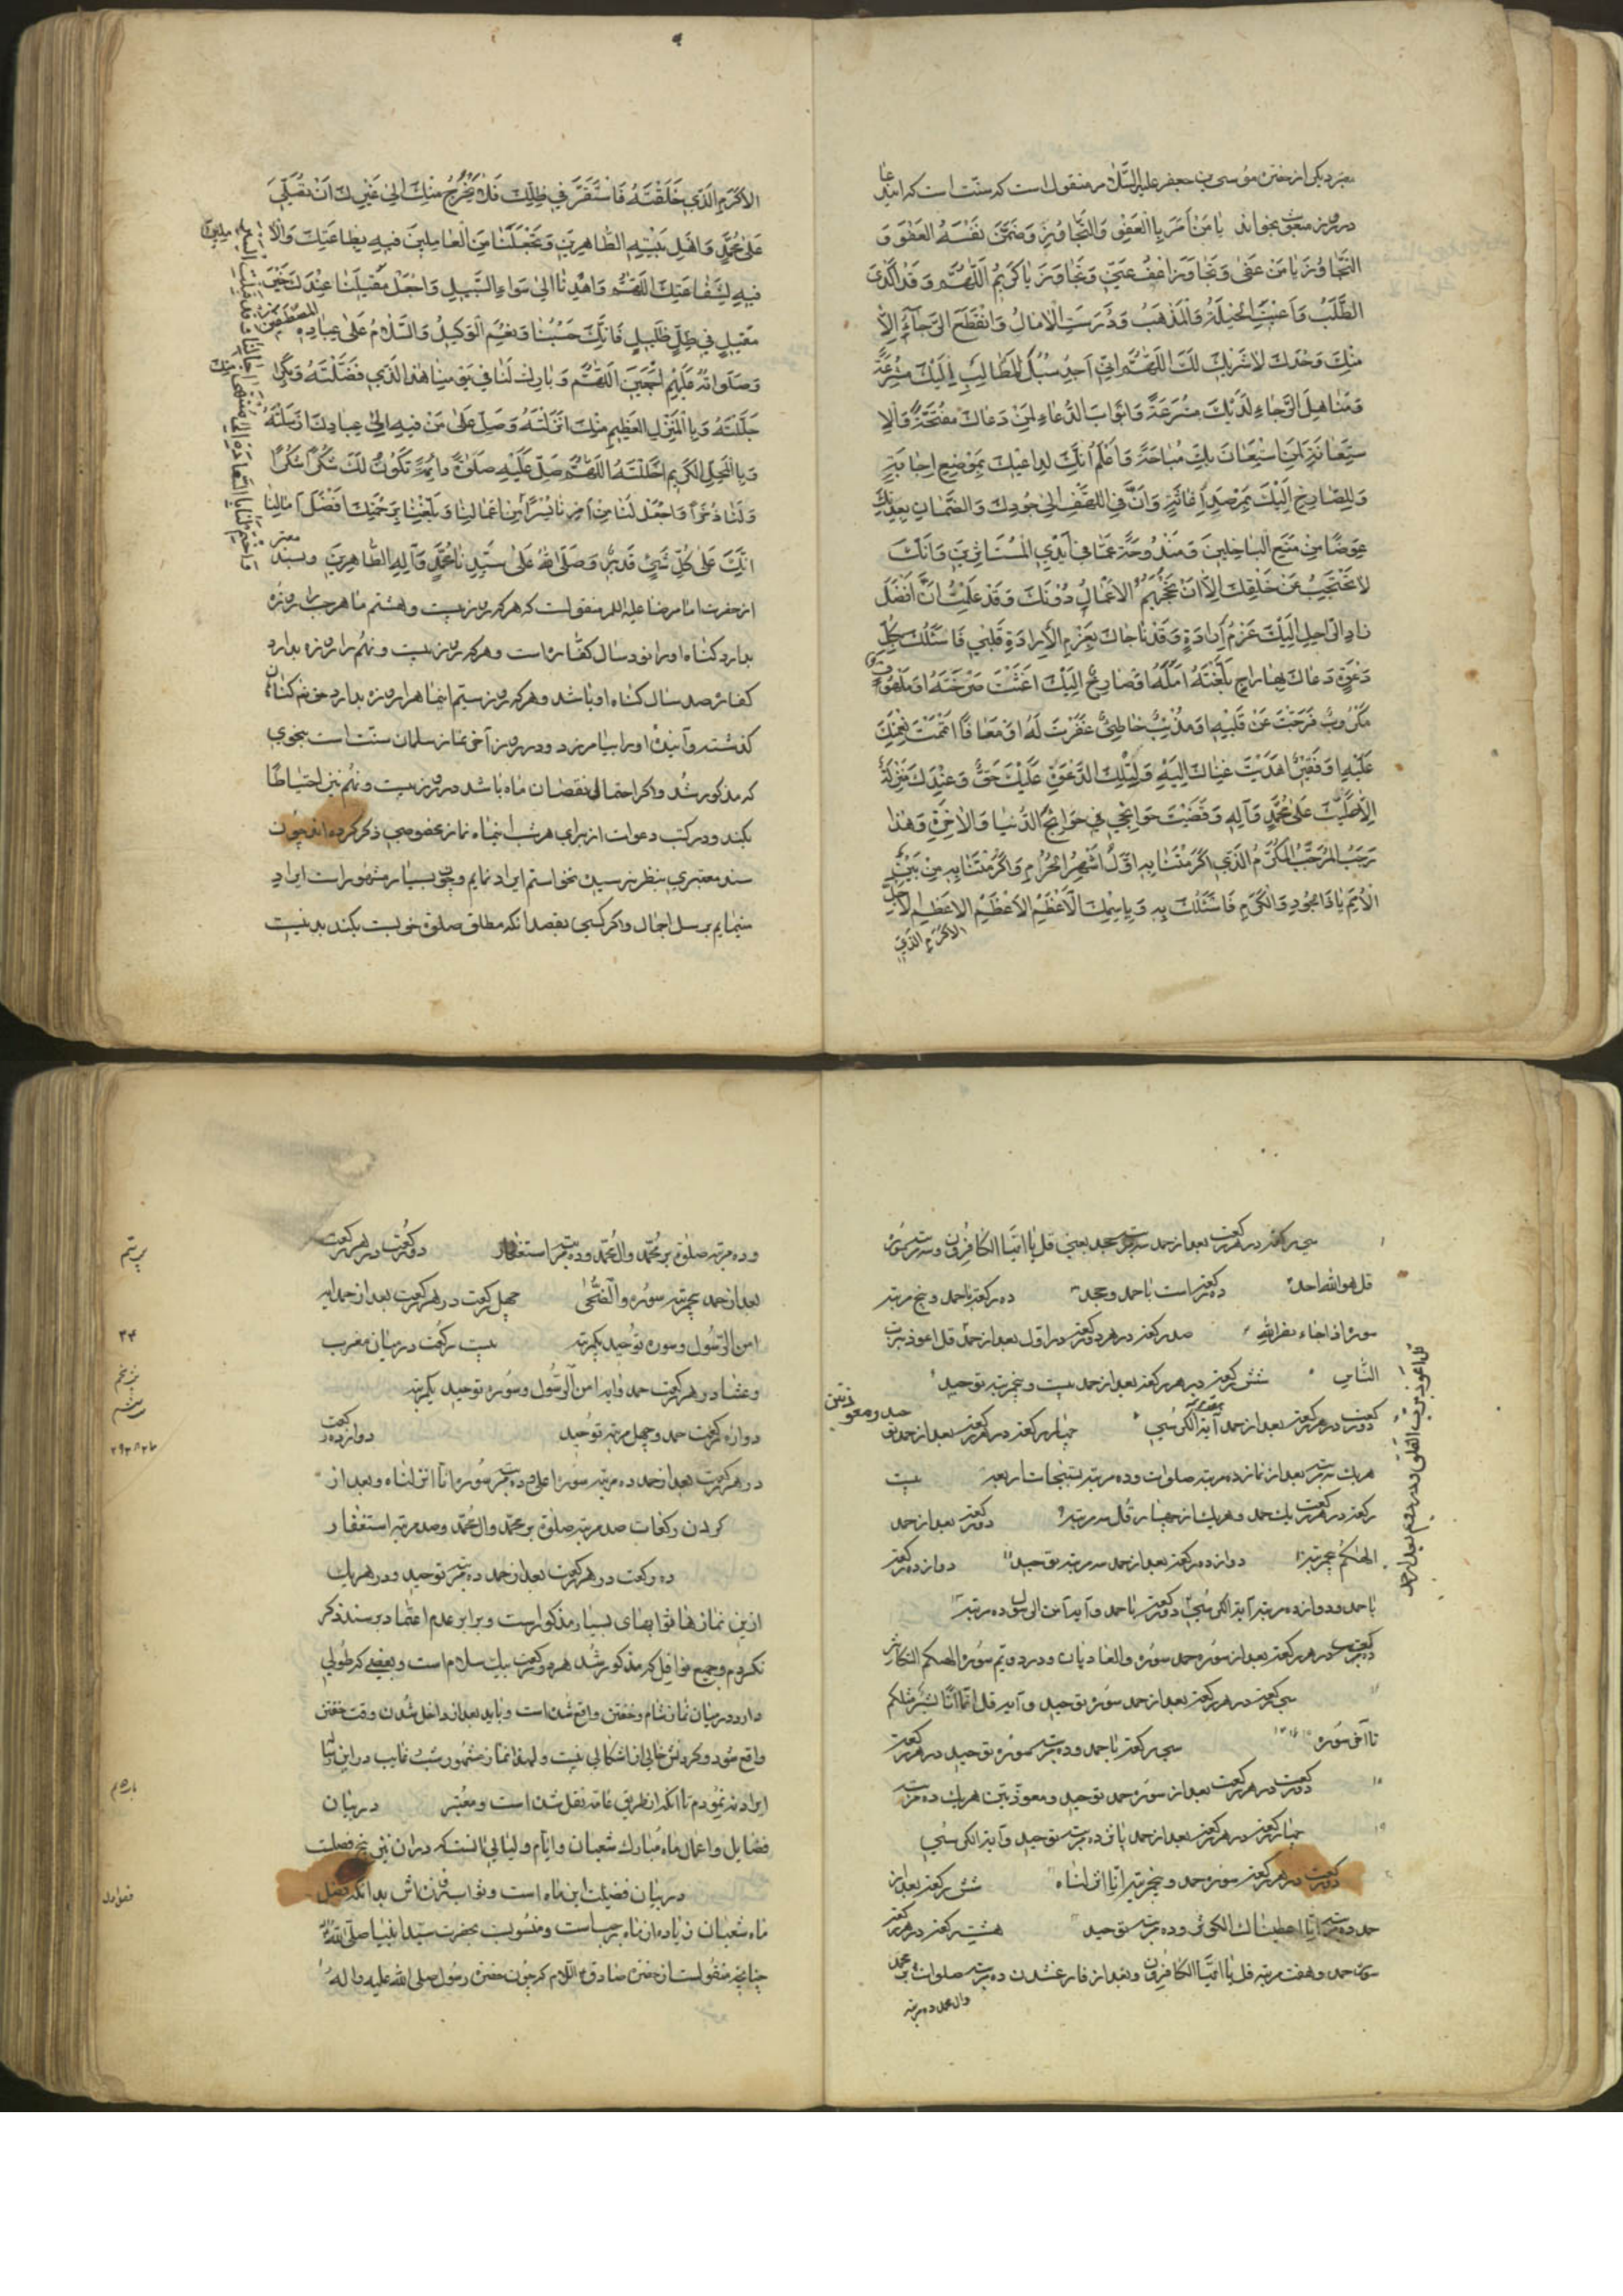 معتبر دیگر از حضرت موسی بن جعفر علیه السلام منقول است که سنت است که این دعا
در روز مبعث بخواند یا مَن اَمَرَ بِالعَفوِ وَالتَّجاوُزِ وَضَمَّنَ نَفسَهُ العَفوَ وَ
التَّجاوُزَ یا مَن عَفی وَتَجاوَزَ اُعفُ عَنّی وَتَجاوَز یا کَریمُ اَللّهُمَّ وَقَد اَکدَی
الطَّلَبُ وَاَعیَتِ الحیلَةُ وَالمَذهَبُ وَدَرَسَتِ الامالُ وَانقَطَعَ الرَّجاءُ اِلاّ
مِنکَ وَحدَکَ لا شَریکَ لَکَ اَللّهُمَّ اِنّی اَجِدُ سُبُلَ المَطالِبِ اِلَیکَ مُشرَعَةً
وَمَناهِلَ الرَّجاءِ لَدَیکَ مُترَعَةً وَاَبوابَ الدُّعاءِ لِمَن دَعاکَ مُفَتَّحَةً وَالاِ
ستِعانَةَ لِمَنِ استَعانَ بِکَ مُباحَةً وَاَعلَمُ اَنَّکَ لِداعیکَ بِمَوضِعِ اِجابَةٍ
وَلِلصّارِخِ اِلَیکَ بِمَرصَدِ اِغاثَةٍ وَاَنَّ فِی اللَّهفِ اِلی جُودِکَ وَالضَّمانِ بِعِدَتِکَ
عِوَضًا مِن مَنعِ الباخِلینَ وَمَندُوحَةً عَمّا فی اَیدِی المُستَاثِرینَ وَاَنَّکَ
لا تَحتَجِبُ عَن خَلقِکَ اِلاّ اَن تَحجُبَهُمُ الاَعمالُ دُونَکَ وَقَد عَلِمتُ اَنَّ اَفضَلَ
زادِ الرّاحِلِ اِلَیکَ عَزمُ اِرادَةٍ وَقَد ناجاکَ بِعَزمِ الاِرادَةِ قَلبی فَاَسئَلُکَ بِکُلِّ
دَعوَةٍ دَعاکَ بِها راجٍ بَلَّغتَهُ اَمَلَهُ اَو صارِخٌ اِلَیکَ اَغَثتَ صَرخَتَهُ اَو مَلهُوفٌ
مَکرُوبٌ فَرَّجتَ عَن قَلبِهِ اَو مُذنِبٌ خاطِئٌ غَفَرتَ لَهُ اَو مُعافًا اَتمَمتَ نِعمَتَکَ
عَلَیهِ اَو فَقیرٌ اَهدَیتَ غِناکَ اِلَیهِ وَلِتِلکَ الدَّعوَةِ عَلَیکَ حَقٌّ وَعِندَکَ مَنزِلَةٌ
اِلاّ صَلَّیتَ عَلی مُحَمَّدٍ وَآلِهِ وَقَضَیتَ حَوائِجی فی حَوائِجِ الدُّنیا وَالاخِرَةِ وَهذا
رَجَبُ المُرَجَّبُ المُکَرَّمُ الَّذی اَکرَمتَنا بِهِ اَوَّلُ اَشهُرِ الحُرُمِ وَاَکرَمتَنا بِهِ مِن بَینِ
الاُمَمِ یا ذَا الجُودِ وَالکَرَمِ فَاَسئَلُکَ بِهِ وَبِاسمِکَ الاَعظَمِ الاَعظَمِ الاَعظَمِ الاَجَلِّ
الاَکرَمِ الَّذی
الاَکرَمِ الَّذی خَلَقتَهُ فَاستَقَرَّ فی ظِلِّکَ فَلا یَخرُجُ مِنکَ اِلی غَیرِکَ اَن تُصَلِّیَ
عَلی مُحَمَّدٍ وَاَهلِ بَیتِهِ الطّاهِرینَ وَتَجعَلَنا مِنَ العامِلینَ فیهِ بِطاعَتِکَ وَالا
ملینَ
فیهِ لِشَفاعَتِکَ اَللّهُمَّ وَاهدِنا اِلی سَواءِ السَّبیلِ وَاجعَل مَقیلَنا عِندَکَ خَیرَ
مَقیلٍ فی ظِلٍّ ظَلیلٍ فَاِنَّکَ حَسبُنا وَنِعمَ الوَکیلُ وَالسَّلامُ عَلی عِبادِهِ المُصطَفَینَ
وَصَلَواتُهُ عَلَیهِم اَجمَعینَ اَللّهُمَّ وَبارِک لَنا فی یَومِنا هذَا الَّذی فَضَّلتَهُ وَبِکَرامَتِکَ
جَلَّلتَهُ وَبِالمَنزِلِ العَظیمِ مِنکَ اَنزَلتَهُ وَصَلِّ عَلی مَن فیهِ اِلی عِبادِکَ اَرسَلتَهُ
وَبِالمَحَلِّ الکَریمِ اَحلَلتَهُ اَللّهُمَّ صَلِّ عَلَیهِ صَلوةً دائِمَةً تَکُونُ لَکَ شُکرًا
وَلَنا ذُخرًا وَاجعَل لَنا مِن اَمرِنا یُسرًا
اِنَّکَ عَلی کُلِّ شَیءٍ قَدیرٌ وَصَلَّی اللهُ عَلی سَیِّدِنا مُحَمَّدٍ وَآلِهِ الطّاهِرینَ وبسند معتبر
از حضرت امام رضا علیه السلام منقولست که هر که روز بیست و هشتم ماه رجب را روزه
بدارد کفاره نود سال است و هر که روز بیست و نهم را روزه بدارد
کفاره صد سال گناه او باشد و هر که روز سیم اینماه را روزه بدارد حق تعالی گناهان
گذشته و آینده او را بیامرزد و در روز آخر نماز سلمان سنت است بنحوی
که مذکور شد و اگر احتمال نقصان ماه باشد در روز بیست و نهم نیز احتیاطاً
بکند و در کتب دعوات از برای هر شب اینماه نماز مخصوصی ذکر کرده اند چون
سند معتبری بنظر نرسید نخواستم ایراد نمایم و چون بسیار مشهور است ایراد
مینمایم بر سبیل اجمال و اگر کسی بقصد آنکه مطلق صلوة خوبست بکند بد نیست
سی رکعت در هر رکعت بعد از حمد سه مرتبه جحد یعنی قل یا ایها الکافرون و سه مرتبه سوره
قل هو الله احد ده رکعت است با حمد و جحد ده رکعت با حمد و پنج مرتبه
سوره اذا جاء نصر الله صد رکعت در هر دو رکعت در اول بعد از حمد قل اعوذ برب
النّاس شش رکعت در هر رکعت بعد از حمد بیست و پنج مرتبه توحید
قل اعوذ برب الفلق و در دویم بعد از حمد
دو رکعت در هر رکعت بعد از حمد آیة الکرسی چهار رکعت در هر رکعت بعد از حمد
هریک سه مرتبه بعد از نماز ده مرتبه صلوات و ده مرتبه تسبیحات اربعه بیست
رکعت در هر رکعت یک حمد و هریک از چهار قل سه مرتبه دو رکعت بعد از حمد
الهیکم پنج مرتبه دوازده رکعت بعد از حمد سه مرتبه توحید دوازده رکعت
با حمد و دوازده مرتبه آیة الکرسی دو رکعت با حمد و آیه آمن الرسول ده مرتبه
ده رکعت در هر رکعت بعد از سوره حمد سوره والعادیات و در دویم سوره الهیکم التکاثر
سی رکعت در هر رکعت بعد از حمد سوره توحید و آیه قل انما انا بشر مثلکم
تا آخر سوره سی رکعت با حمد و ده مرتبه سوره توحید در هر رکعت
دو رکعت در هر رکعت بعد از سوره حمد توحید و معوذتین هریک ده مرتبه
چهار رکعت در هر رکعت بعد از حمد پانزده مرتبه توحید و آیة الکرسی
دو رکعت در هر رکعت سوره حمد و پنج مرتبه انا انزلناه شش رکعت بعد از
حمد ده مرتبه انا اعطیناک الکوثر و ده مرتبه توحید هشت رکعت در هر رکعت
سوره حمد و هفت مرتبه قل یا ایها الکافرون و بعد از فارغ شدن ده مرتبه صلوات بر محمد
وال محمد ده مرتبه
و ده مرتبه صلوة بر محمد وال محمد و ده مرتبه استغفار دو رکعت در هر رکعت
بعد از حمد پنج مرتبه سوره والضحی چهل رکعت در هر رکعت بعد از حمد آیه
امن الرسول و سوره توحید یکمرتبه بیست رکعت در میان مغرب
و عشا در هر رکعت حمد و آیه امن الرسول و سوره توحید یکمرتبه
دوازده رکعت حمد و چهل مرتبه توحید دوازده رکعت
در هر رکعت بعد از حمد ده مرتبه سوره اعلی و ده مرتبه سوره انا انزلناه و بعد از
کردن رکعات صد مرتبه صلوة بر محمد وال محمد و صد مرتبه استغفار
ده رکعت در هر رکعت بعد از حمد ده مرتبه توحید و در هریک
ازین نمازها ثوابهای بسیار مذکور است و بر آن عدم اعتماد بر سند ذکر
نکردم و جمیع نوافل که مذکور شد هر دو رکعت بیک سلام است و بعضی که طولی
دارد در میان نماز شام و خفتن واقع شده است و باید بعد از داخل شدن وقت خفتن
واقع شود و کردنش خالی از اشکالی نیست و لهذا نماز مشهور شب غایب در این
ایراد نه نمودم با آنکه از طریق عامه نقل شده است و معتبر در بیان
فضایل و اعمال ماه مبارک شعبان و ایام و لیالی آنست و در آن نیز پنج فصلست
در بیان فضیلت این ماه است و ثواب روزه اش بدانکه فضل
ماه شعبان زیاده از ماه رجب است و منسوبست بحضرت سید انبیا صلی الله علیه
چنانچه منقولست از حضرت صادق علیه السلام که چون حضرت رسول صلی الله علیه واله